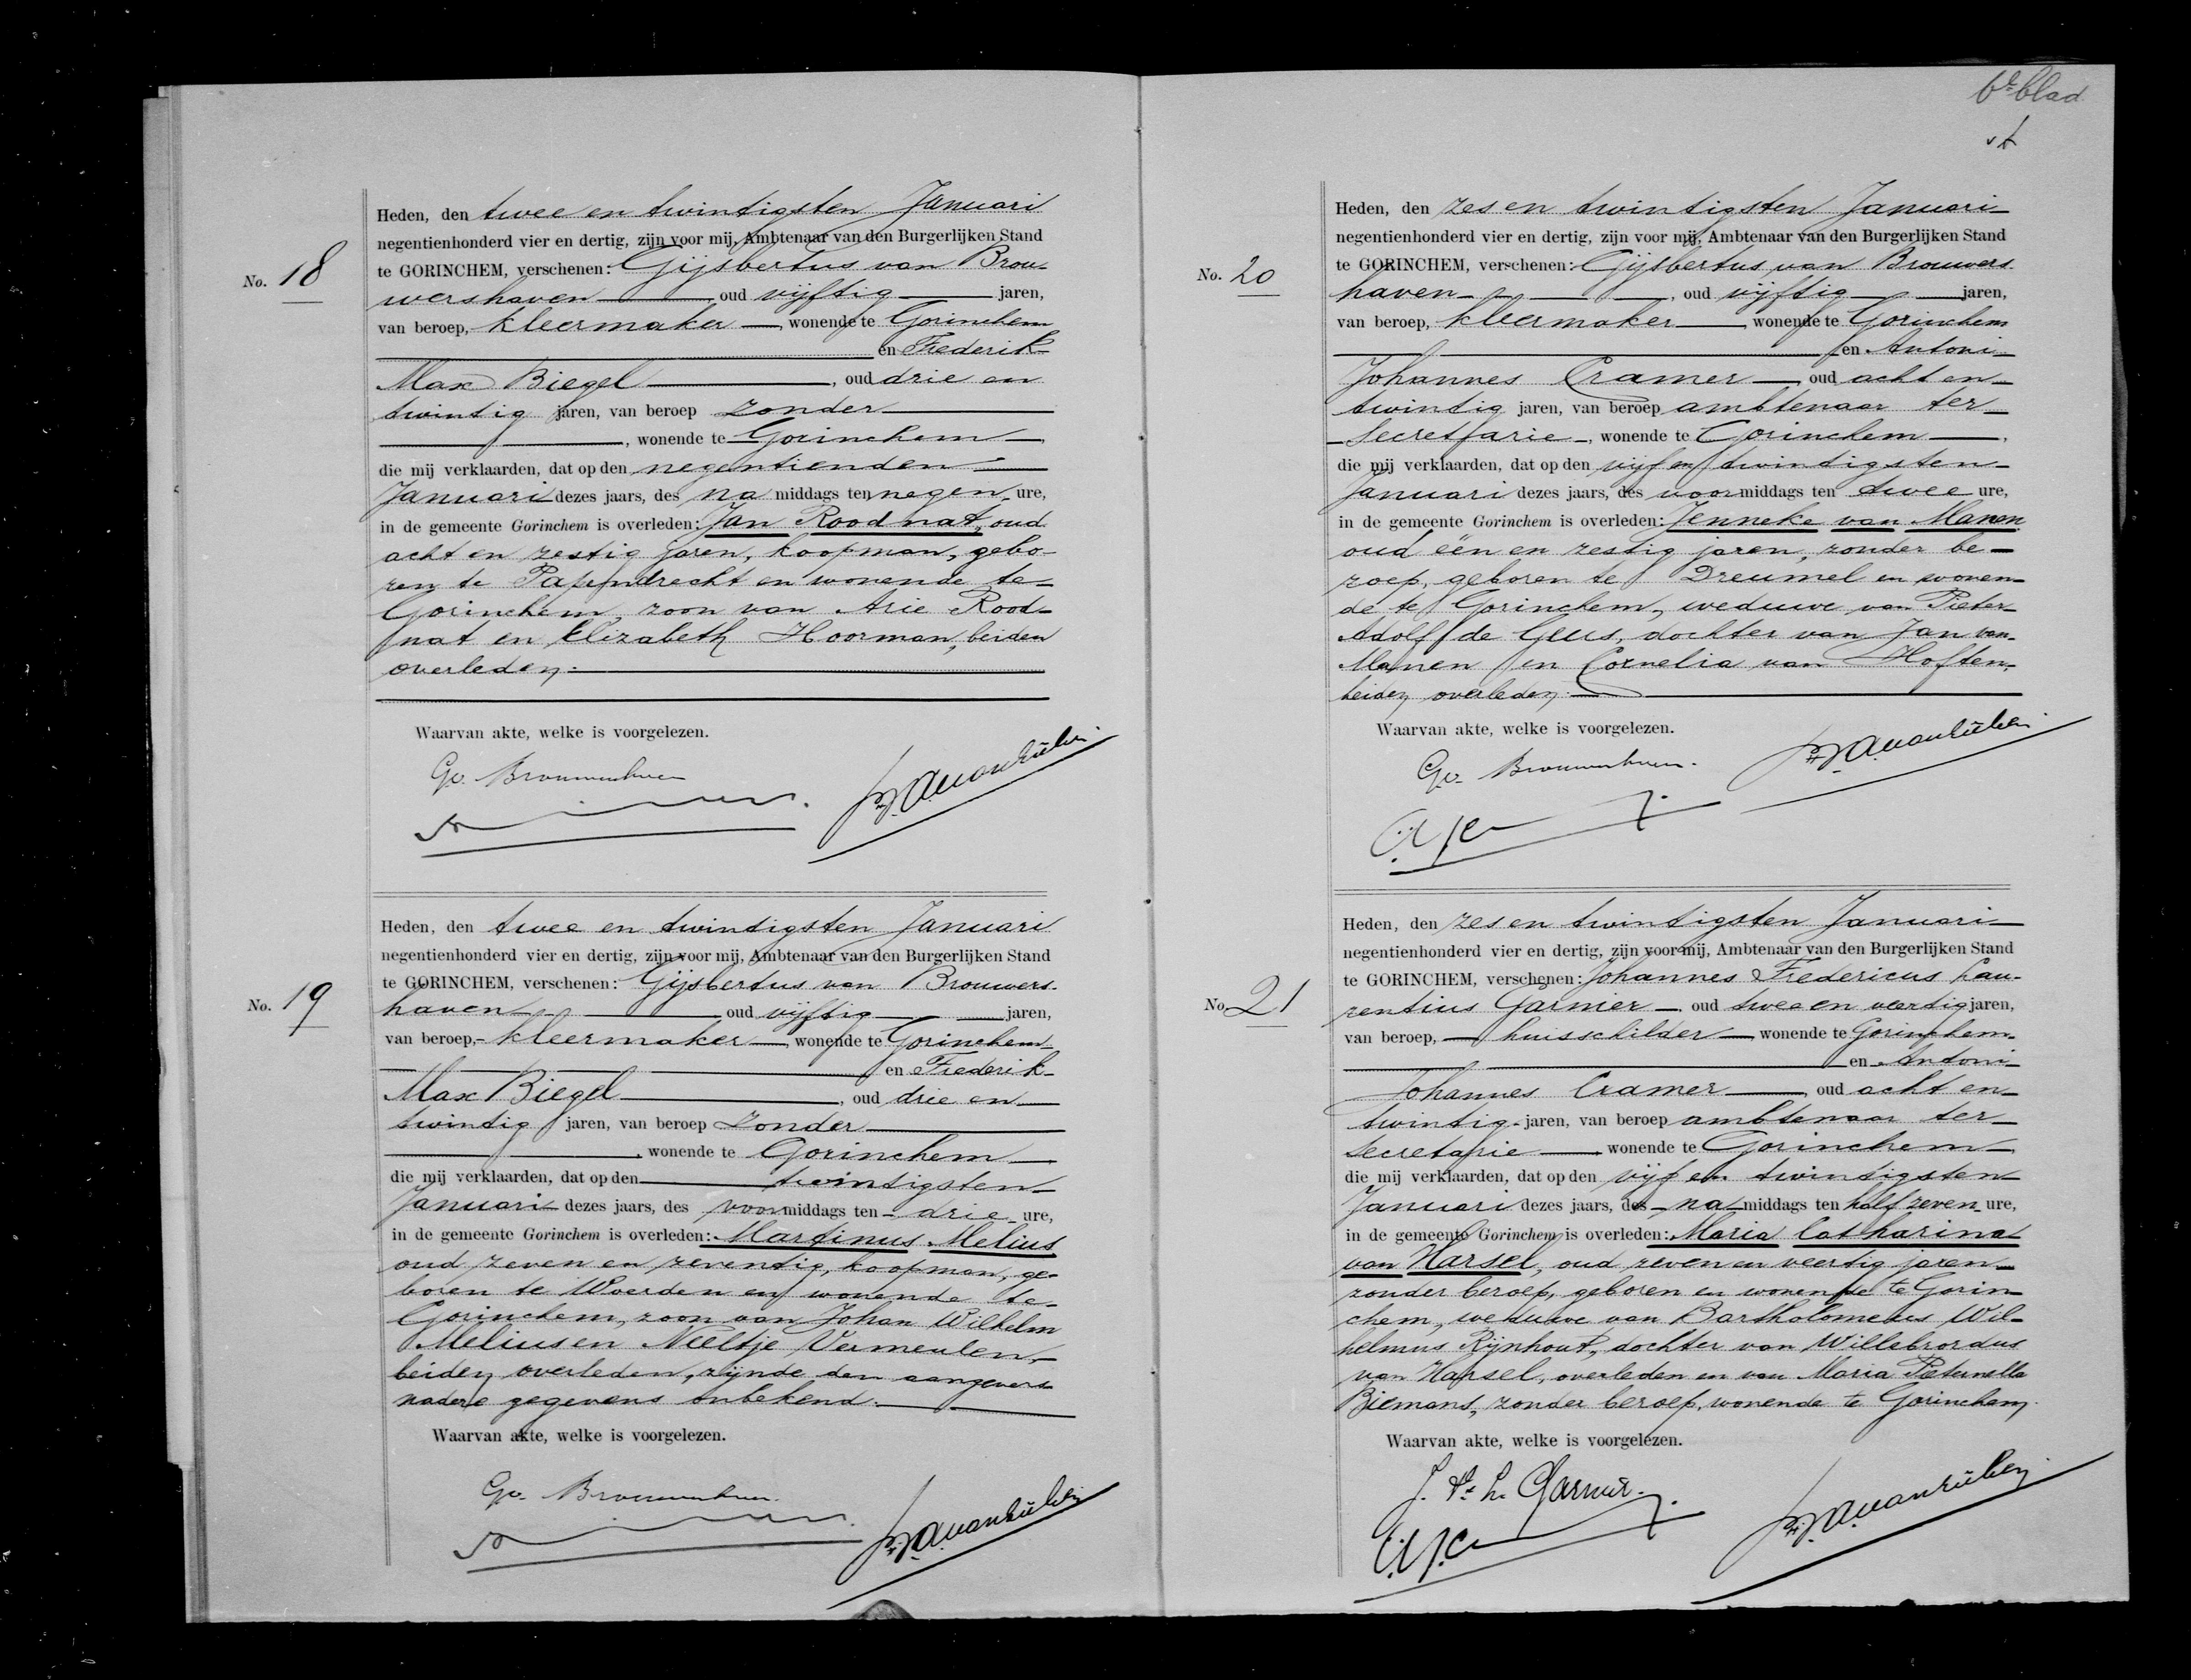 No. 18
Heden, den twee en twintigsten Januari
negentienhonderd vier en dertig, zijn voor mij, Ambtenaar van den Burgerlijken Stand
te GORINCHEM, verschenen: Gijsbertus van Brou-
wershaven oud vijftig jaren,
van beroep, kleermaker, wonende te Gorinchem
en Frederik
Max Biegel, oud drie en
twintig jaren, van beroep zonder
, wonende te Gorinchem
die mij verklaarden, dat op den negentienden
Januari dezes jaars, des na middags ten negen ure,
in de gemeente Gorinchem is overleden: Jan Roodnat, oud
acht en zestig jaren, koopman, gebo-
ren te Papendrecht en wonende te
Gorinchem, zoon van Arie Rood-
nat en Elizabeth Hoorman, beiden
overleden.
Waarvan akte, welke is voorgelezen.
Gv. Brouwershaven
No. 19
Heden, den twee en twintigsten Januari
negentienhonderd vier en dertig, zijn voor mij, Ambtenaar van den Burgerlijken Stand
te GORINCHEM, verschenen: Gijsbertus van Brouwers-
haven oud vijftig jaren,
van beroep, kleermaker, wonende te Gorinchem
en Frederik
Max Biegel, oud drie en
twintig jaren, van beroep zonder
, wonende te Gorinchem
die mij verklaarden, dat op den twintigsten
Januari dezes jaars, des voor middags ten drie ure,
in de gemeente Gorinchem is overleden: Martinus Melius
oud zeven en zeventig, koopman, ge-
boren te Woerden en wonende te
Gorinchem, zoon van Johan Wilhelm
Melius en Neeltje Vermeulen,
beiden overleden, zijnde den aangevers
nadere gegevens onbekend.
Waarvan akte, welke is voorgelezen.
Gv. Brouwershaven
6e blad
No. 20
Heden, den zes en twintigsten Januari
negentienhonderd vier en dertig, zijn voor mij, Ambtenaar van den Burgerlijken Stand
te GORINCHEM, verschenen: Gijsbertus van Brouwers
haven, oud vijftig jaren,
van beroep, kleermaker, wonende te Gorinchem
en Antoni
Johannes Cramer, oud acht en
twintig jaren, van beroep ambtenaar ter
secretarie, wonende te Gorinchem,
die mij verklaarden, dat op den vijf en twintigsten
Januari dezes jaars, des voor middags ten twee ure,
in de gemeente Gorinchem is overleden: Jenneke van Manen
oud één en zestig jaren, zonder be-
roep, geboren te Dreumel en wonen-
de te Gorinchem, weduwe van Pieter
Adolf de Geus, dochter van Jan van
Manen en Cornelia van Hoften,
beiden overleden.
Waarvan akte, welke is voorgelezen.
Gv. Brouwershaven.
No. 21
Heden, den zes en twintigsten Januari
negentienhonderd vier en dertig, zijn voor mij, Ambtenaar van den Burgerlijken Stand
te GORINCHEM, verschenen: Johannes Fredericus Lau-
rentius Garnier, oud twee en veertig jaren,
van beroep, huisschilder wonende te Gorinchem.
en Antoni
Johannes Cramer, oud acht en
twintig jaren, van beroep ambtenaar ter
secretarie wonende te Gorinchem
die mij verklaarden, dat op den vijf en twintigsten
Januari dezes jaars, des na middags ten half zeven ure,
in de gemeente Gorinchem is overleden: Maria Catharina
van Harsel, oud zeven en veertig jaren
zonder beroep, geboren en wonende te Gorin-
chem, weduwe van Bartholomeus Wil-
helmus Rijnhout, dochter van Willebrordus
van Harsel, overleden en van Maria Peternella
Biemans, zonder beroep, wonende te Gorinchem.
Waarvan akte, welke is voorgelezen.
J. Fr. L. Garnier.